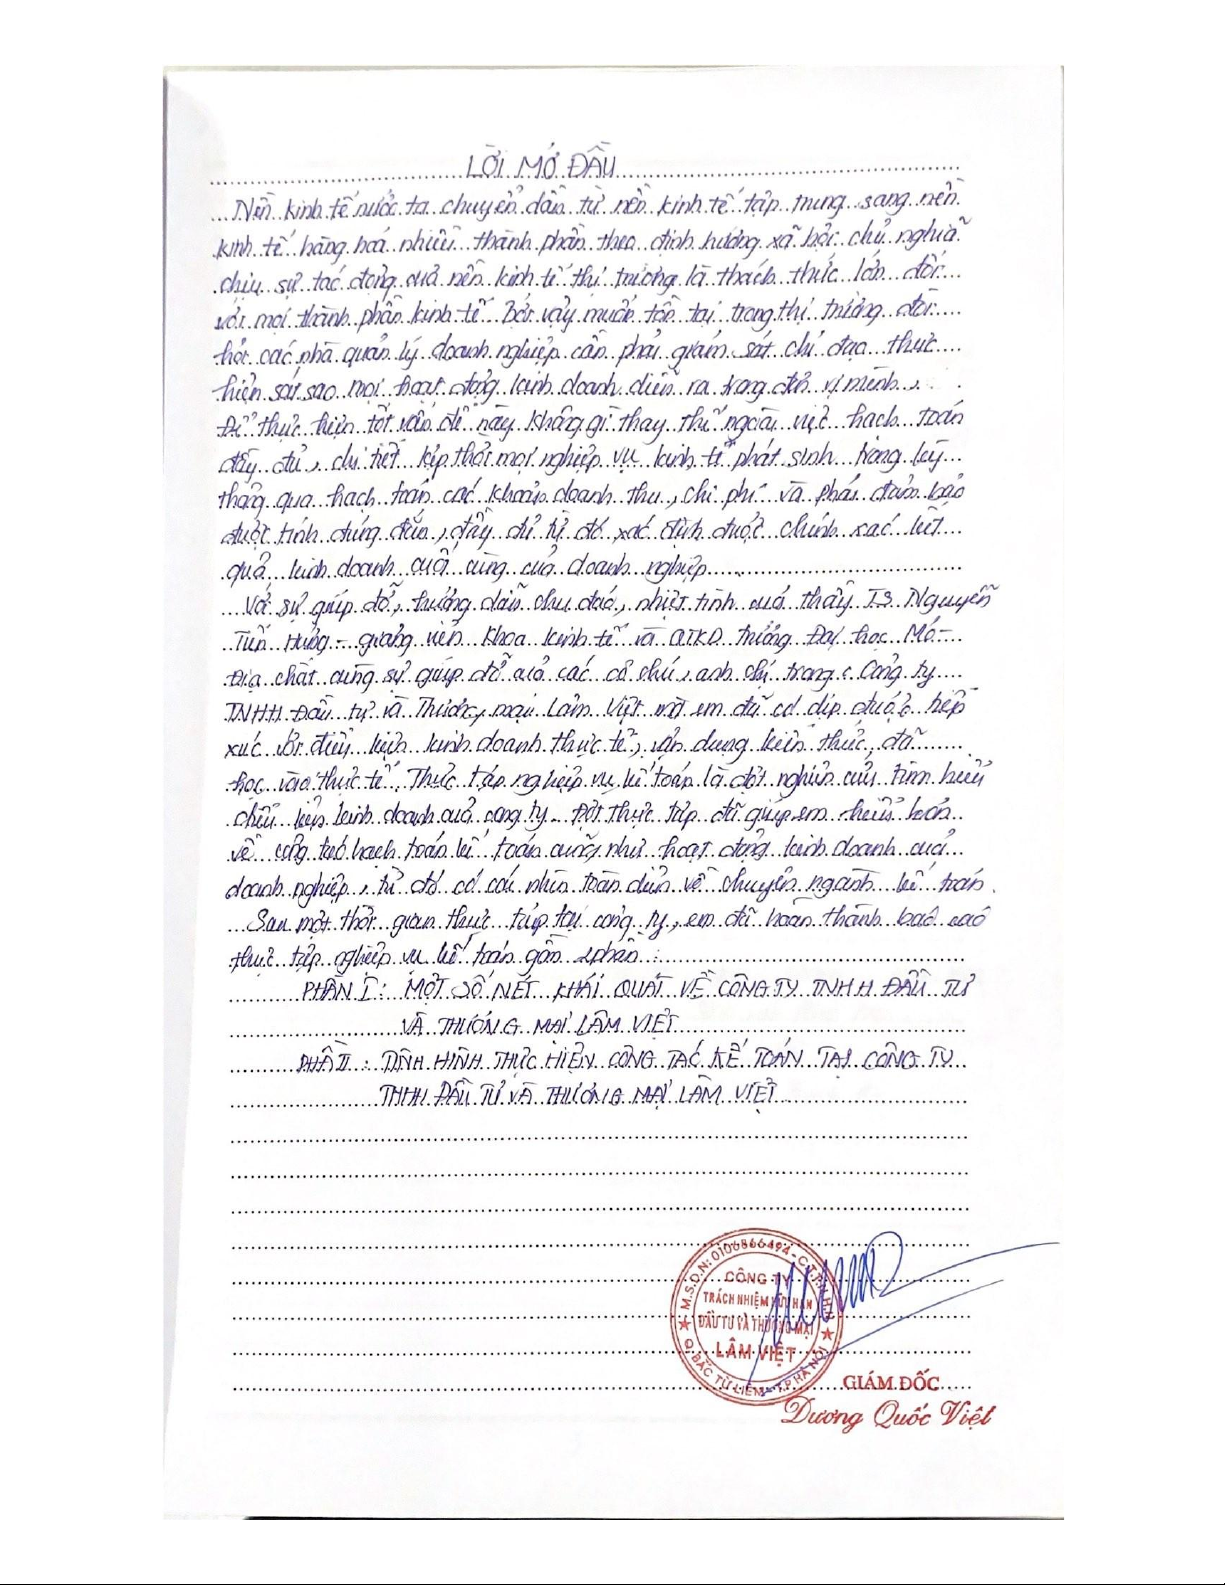 LỜI MỞ ĐẦU
Nền kinh tế nước ta chuyển dần từ nền kinh tế tập trung sang nền
kinh tế hàng hoá nhiều thành phần theo định hướng xã hội chủ nghĩa
chịu sự tác động của nền kinh tế thị trường là thách thức lớn đối
với mọi thành phần kinh tế. Bởi vậy muốn tồn tại trong thị trường đòi
hỏi các nhà quản lý doanh nghiệp cần phải giám sát chỉ đạo thực
hiện sát sao mọi hoạt động kinh doanh diễn ra trong đơn vị mình.
Để thực hiện tốt vấn đề này không gì thay thế ngoài việc hạch toán
đầy đủ, chi tiết kịp thời mọi nghiệp vụ kinh tế phát sinh trong kỳ
thông qua hạch toán các khoản doanh thu, chi phí và phải đảm bảo
được tính đúng đắn, đầy đủ từ đó xác định được chính xác kết
quả kinh doanh cuối cùng của doanh nghiệp
Với sự giúp đỡ, hướng dẫn chu đáo, nhiệt tình của thầy TS Nguyễn
Tiến Hưng - giảng viên Khoa kinh tế và QTKD trường Đại học Mỏ -
Địa chất cùng sự giúp đỡ của các cô chú, anh chị trong Công ty
TNHH Đầu tư và Thương mại Lâm Việt mà em đã có dịp được tiếp
xúc với điều kiện kinh doanh thực tế, vận dụng kiến thức đã
học vào thực tế. Thực tập nghiệp vụ kế toán là đợt nghiên cứu tìm hiểu
điều kiện kinh doanh của công ty. Đợt thực tập đã giúp em hiểu hơn
về công tác hạch toán kế toán cũng như hoạt động kinh doanh của
doanh nghiệp, từ đó có cái nhìn toàn diện về chuyên ngành kế toán.
Sau một thời gian thực tập tại công ty, em đã hoàn thành báo cáo
thực tập nghiệp vụ kế toán gồm 2 phần:
PHẦN I: MỘT SỐ NÉT KHÁI QUÁT VỀ CÔNG TY TNHH ĐẦU TƯ
VÀ THƯƠNG MẠI LÂM VIỆT
PHẦN II: TÌNH HÌNH THỰC HIỆN CÔNG TÁC KẾ TOÁN TẠI CÔNG TY
TNHH ĐẦU TƯ VÀ THƯƠNG MẠI LÂM VIỆT
M.S.D.N: 0106866494 - C.T.T.N.H.H
CÔNG TY
TRÁCH NHIỆM HỮU HẠN
ĐẦU TƯ VÀ THƯƠNG MẠI
LÂM VIỆT
Q. BẮC TỪ LIÊM - T.P HÀ NỘI
GIÁM ĐỐC
Dương Quốc Việt